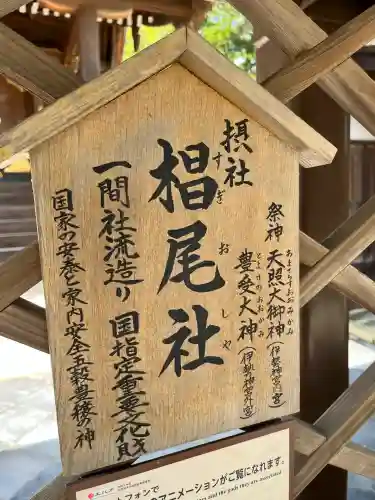 摂社
椙尾社
すぎ お しゃ
祭神 天照大御神(伊勢神宮内宮)
あまてらすおおみかみ
豊受大神(伊勢神宮外宮)
とようけおおかみ
一間社流造り 国指定重要文化財
国家の安泰と家内安全五穀豊穣の神
アニメーションがご覧になれます。